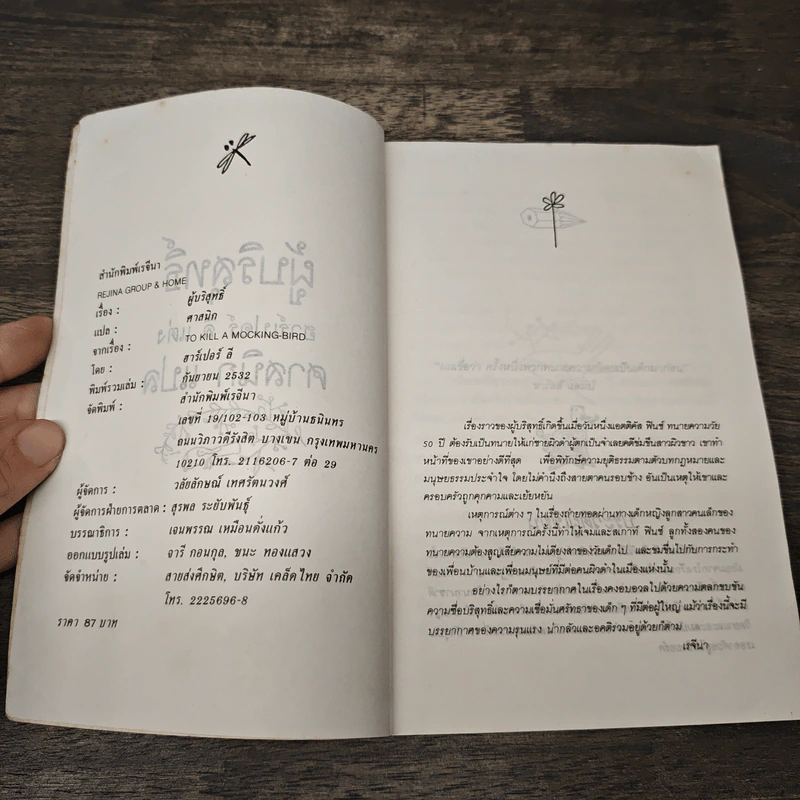 สำนักพิมพ์เรจีนา
REJINA GROUP & HOME
เรื่อง : ผู้บริสุทธิ์
แปล : ศาสนิก
จากเรื่อง : TO KILL A MOCKING-BIRD
โดย : ฮาร์เปอร์ ลี
พิมพ์รวมเล่ม : กันยายน 2532
จัดพิมพ์ : สำนักพิมพ์เรจีนา
เลขที่ 19/102-103 หมู่บ้านธนินทร
ถนนวิภาวดีรังสิต บางเขน กรุงเทพมหานคร
10210 โทร. 2116206-7 ต่อ 29
ผู้จัดการ : วลัยลักษณ์ เทศรัตนวงศ์
ผู้จัดการฝ่ายการตลาด : สุรพล ระยับพันธุ์
บรรณาธิการ : เจนพรรณ เหมือนดั่งแก้ว
ออกแบบรูปเล่ม : จารี กอนกุล, ชนะ ทองแสวง
จัดจำหน่าย : สายส่งศึกษิต, บริษัท เคล็ดไทย จำกัด
โทร. 2225696-8
ราคา 87 บาท
เรื่องราวของผู้บริสุทธิ์เกิดขึ้นเมื่อวันหนึ่งแอตติคัส ฟินช์ ทนายความวัย
50 ปี ต้องรับเป็นทนายให้แก่ชายผิวดำผู้ตกเป็นจำเลยคดีข่มขืนสาวผิวขาว เขาทำ
หน้าที่ของเขาอย่างดีที่สุด เพื่อพิทักษ์ความยุติธรรมตามตัวบทกฎหมายและ
มนุษยธรรมประจำใจ โดยไม่คำนึงถึงสายตาคนรอบข้าง อันเป็นเหตุให้เขาและ
ครอบครัวถูกคุกคามและเย้ยหยัน
เหตุการณ์ต่าง ๆ ในเรื่องถ่ายทอดผ่านทางเด็กหญิงลูกสาวคนเล็กของ
ทนายความ จากเหตุการณ์ครั้งนี้ทำให้เจมและสเกาท์ ฟินช์ ลูกทั้งสองคนของ
ทนายความต้องสูญเสียความไม่เดียงสาของวัยเด็กไป และขมขื่นไปกับการกระทำ
ของเพื่อนบ้านและเพื่อนมนุษย์ที่มีต่อคนผิวดำในเมืองแห่งนั้น
อย่างไรก็ตามบรรยากาศในเรื่องคงอบอวลไปด้วยความตลกขบขัน
ความซื่อบริสุทธิ์และความเชื่อมั่นศรัทธาของเด็ก ๆ ที่มีต่อผู้ใหญ่ แม้ว่าเรื่องนี้จะมี
บรรยากาศของความรุนแรง น่ากลัวและอคติรวมอยู่ด้วยก็ตาม
เรจีนา